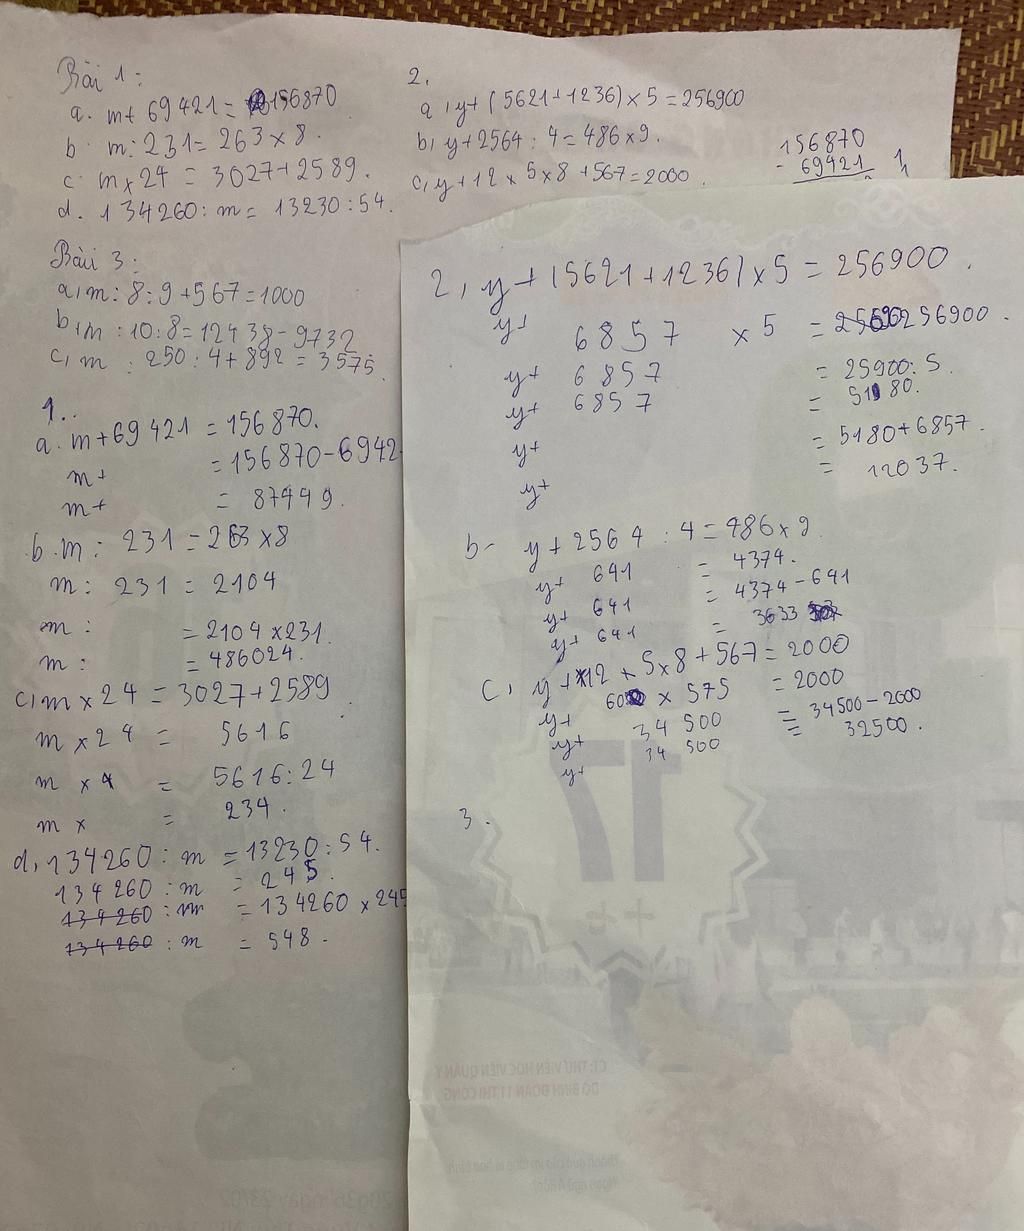 Bài 1:
a. m+ 69421= 156870
b. m: 231= 263 x 8.
c. m x 24 = 3027+2589.
d. 134260: m= 13230:54.
2.
a, y+ (5621+1236) x 5 = 256900
b, y+2564 : 4 = 486 x 9.
c, y + 12 x 5 x 8 + 567 = 2000.
156870
- 69421
Bài 3:
a, m: 8: 9 +567=1000
b, m :10: 8=12438-9732
c, m : 250 : 4+ 892 = 3575.
1..
a. m+69421 = 156870.
m+ = 156870-6942
m+ = 87449.
b. m: 231 = 263 x 8
m: 231 = 2104
m: = 2104 x 231.
m: = 486024.
c, m x 24 = 3027+2589
m x 24 = 5616
m x 4 = 5616:24
m x = 234.
d, 134260: m = 13230:54.
134260 : m = 245.
134260 : m = 134260 x 245
134260 : m = 548.
2, y + (5621+1236) x 5 = 256900.
y+ 6857 x 5 = 256900.
y+ 6857 = 25900:5
y+ 6857 = 5180.
y+ = 5180+6857.
y+ = 12037.
b- y + 2564 : 4 = 486 x 9
y+ 641 = 4374.
y+ 641 = 4374-641
y+ 641 = 3633
c, y + 12 x 5 x 8 + 567 = 2000
y+ 60 x 575 = 2000
y+ 34 500 = 34500-2000
y+ 34 500 = 32500.
3.
17
CT: THƯ VIỆN HỌC VIỆN QUÂN Y
DO BINH ĐOÀN 11 THI CÔNG